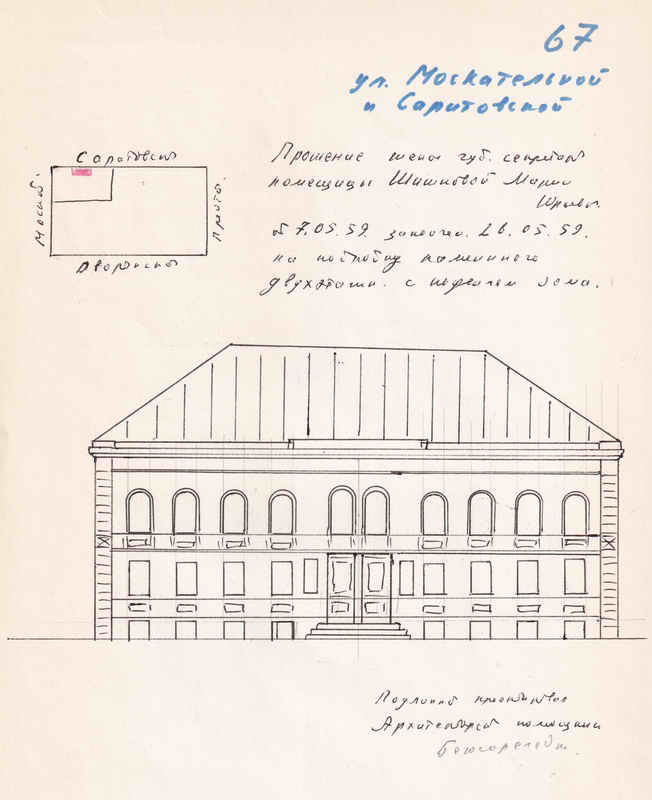 67
ул. Москательной
и Саратовской
Саратовская
Москат.
Приютс.
Дворянская
Прошение жены губ. секретаря
помещицы Шишковой Марии
от 7.05.59. закончен. 26.05.59.
на постройку каменного
двухэтажн. с подвалом дома.
Архитекторский помощник